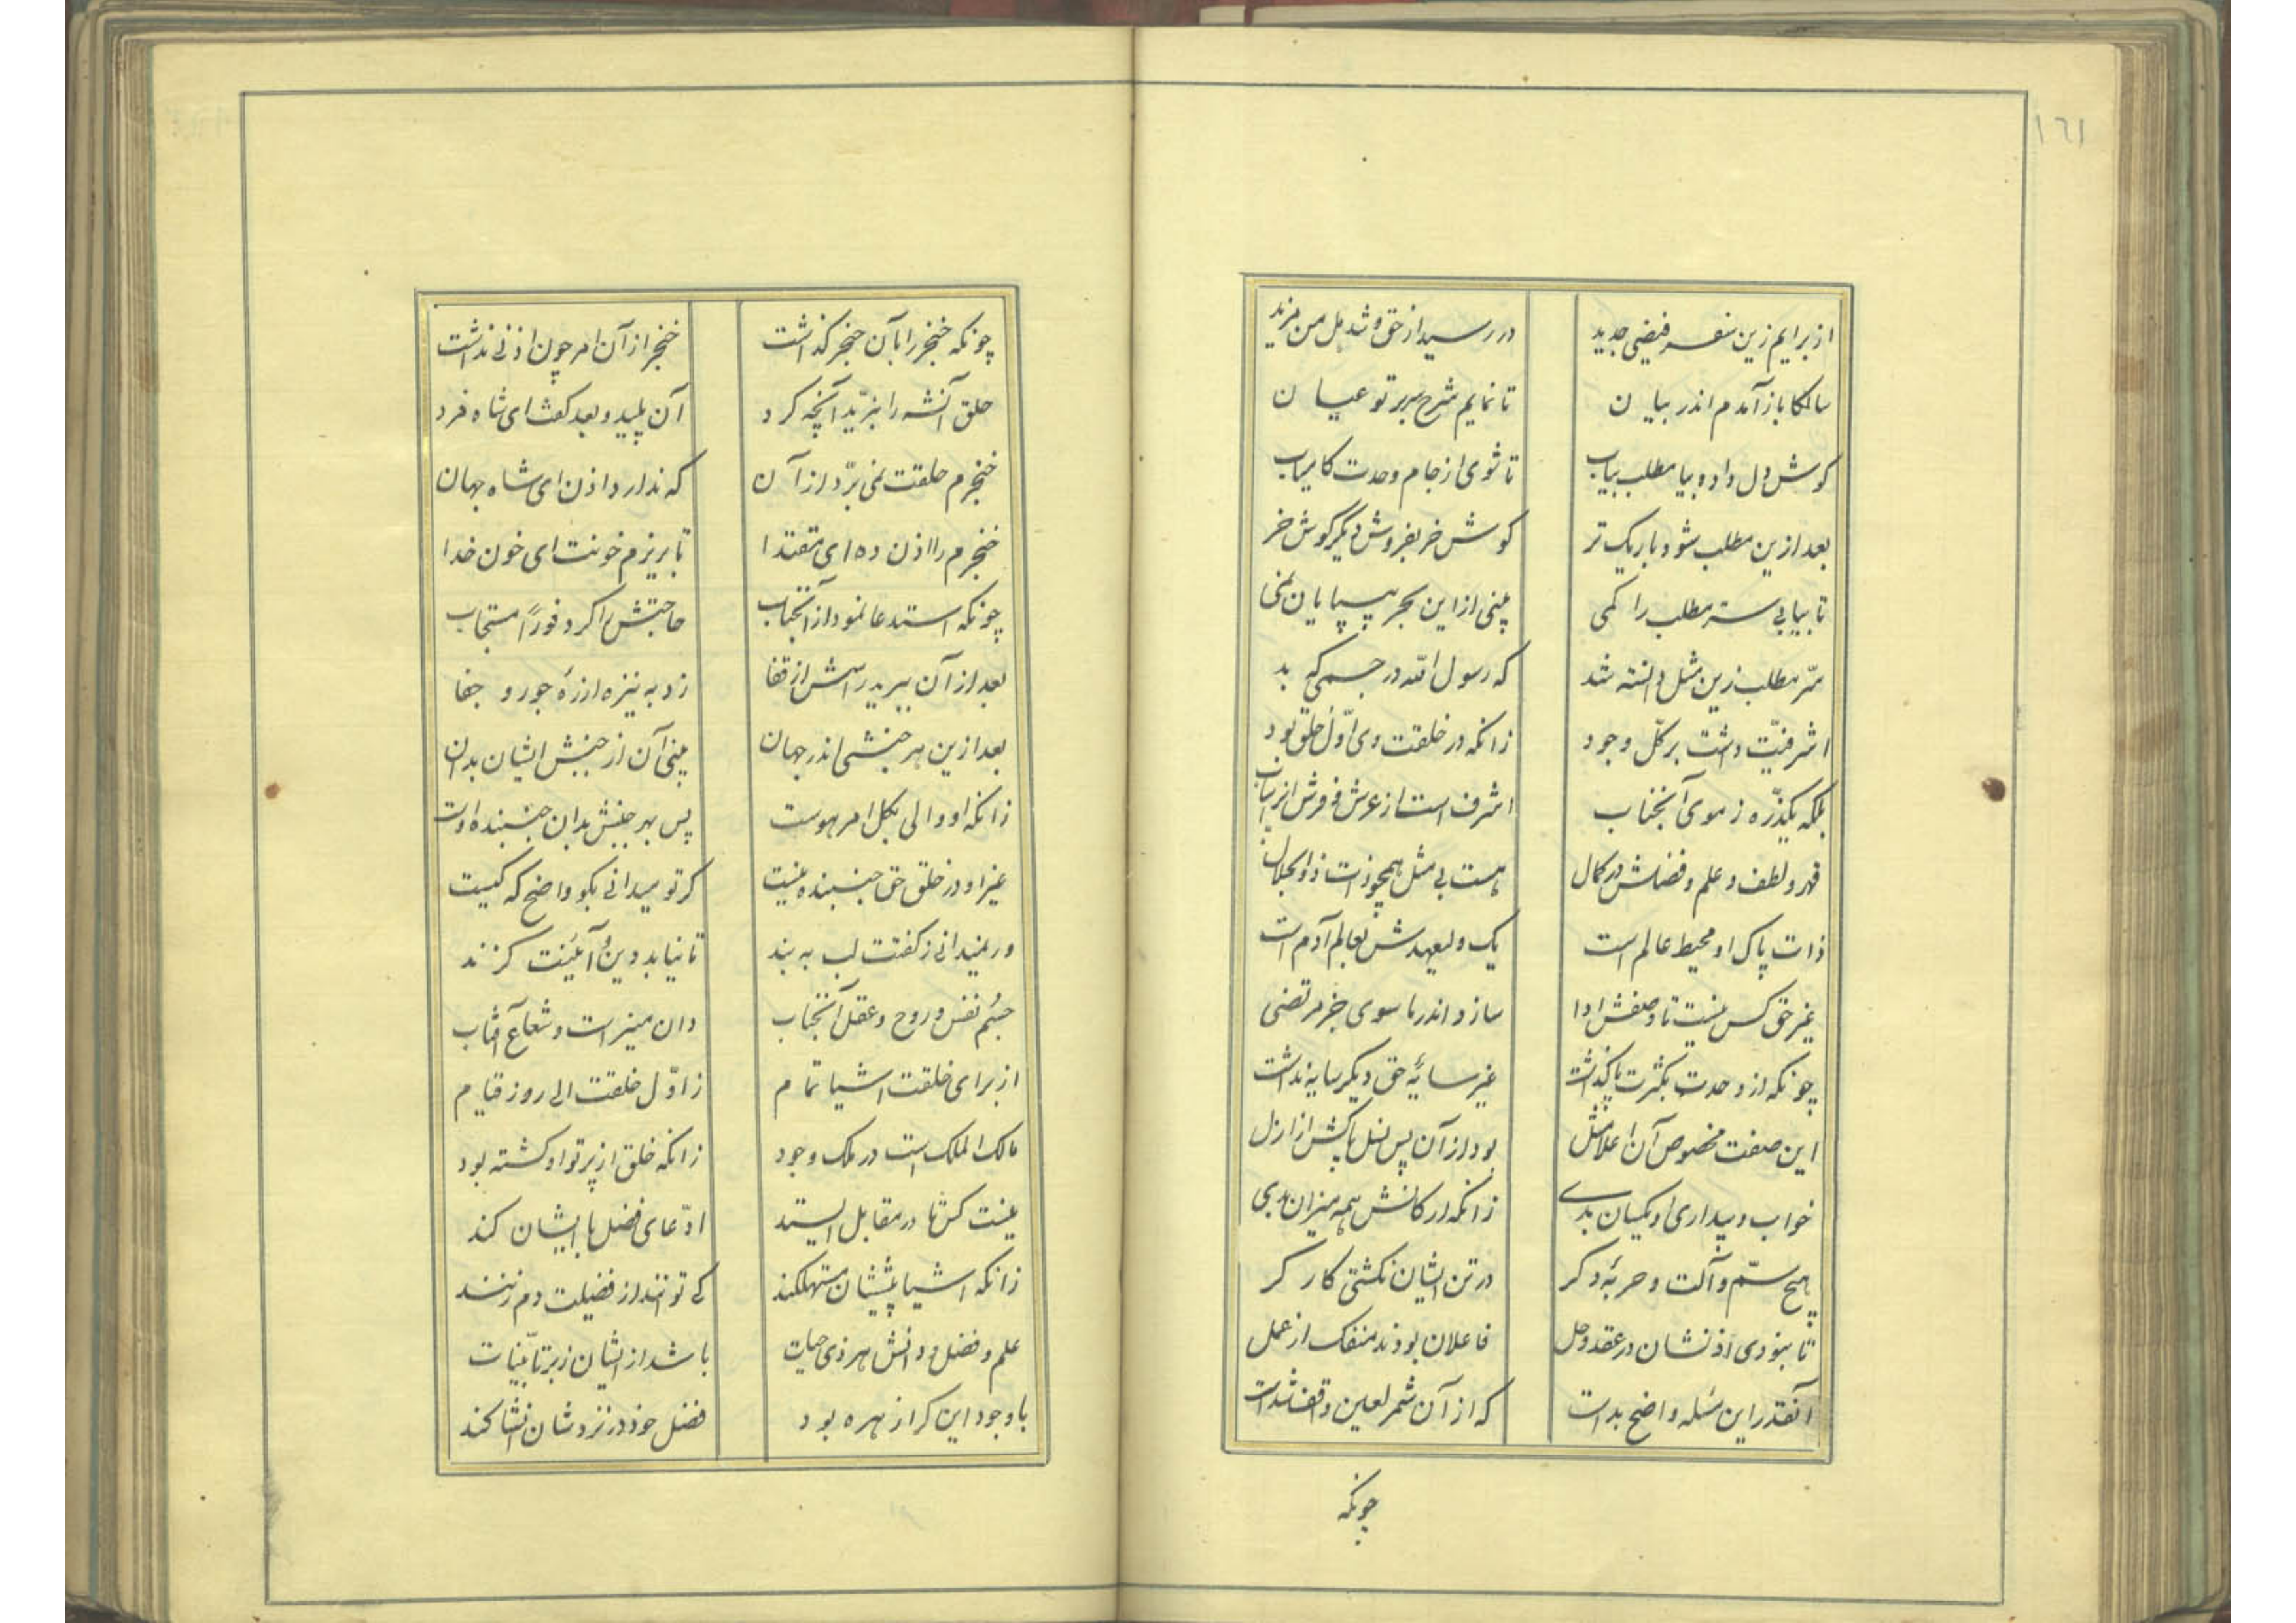 ١٦١
از برایم زین سفر فیضی جدید در رسید از حق و شد دل من مزید
سالکا باز آمدم اندر بیان تا نمایم شرح سر بر تو عیان
کوش دل داده و بیا مطلب بیاب تا شوی از جام وحدت کامیاب
بعد ازین مطلب شود باریک تر کوش خر بفروش دیگر کوش خر
تا بیابی ستر مطلب را کمی بینی از این بحر بیپایان نمی
سرّ مطلب زین مثل دانسته شد که رسول الله در جسمی که بد
اشرفیّت داشت بر کلّ وجود زانکه در خلقت وی اوّل خلق بود
بلکه یکذرّه ز موی آنجناب اشرف است از عرش و فرش
قهر و لطف و علم و فضلش در کمال هست بی مثل همچو ذات ذوالجلال
ذات پاک او محیط عالم است یک ولیعهدش بعالم آدم است
غیر حق کس نیست تا وصفش ادا سازد اندر ما سوی جز مرتضی
چونکه از وحدت بکثرت پا کذاشت غیر سایهٔ حق دیکر سایه نداشت
این صفت مخصوص آن اعلا مثل بود از آن پس نسل پاکش از ازل
خواب و بیداری او یکسان بدی زانکه ارکانش همه میزان بدی
هیچ سمّ و آلت و حربهٔ دکر در تن ایشان نکشتی کار کر
تا نبودی اذنشان در عقد و حل فاعلان بودند منفک از عمل
آنقدر این مسئله واضح بداست که از آن شمر لعین واقف شداست
چونکه
چونکه خنجر را بآن حنجر کذاشت خنجر از آن امر چون اذنی نداشت
حلق آنشه را نبرّید آنچه کرد آن پلید و بعد کفتا ای شاه فرد
خنجرم حلقت نمی برّد از آن که ندارد اذن ای شاه جهان
خنجرم را اذن ده ای مقتدا تا بریزم خونت ای خون خدا
چونکه استدعا نمود از آنجناب حاجتش را کرد فوراً مستجاب
بعد از آن ببرید راسش از قفا زد به نیزه از رهٔ جور و جفا
بعد ازین هر جنبشی اندر جهان بینی آن از جنبش ایشان بدان
زانکه او والی بکل امر هوست پس بهر جنبش بدان جنبنده اوست
غیر او در خلق حق جنبنده نیست کر تو میدانی بکو واضح که کیست
ور نمیدانی ز کفتت لب به بند تا نیابد دین و آئینت کزند
جسم نفس و روح و عقل آنجناب دان منیر است و شعاع آفتاب
از برای خلقت اشیا تمام ز اوّل خلقت الی روز قیام
مالک الملک است در ملک وجود زانکه خلق از پرتو او کشته بود
نیست کس تا در مقابل ایستد ادّعای فضل با ایشان کند
زانکه اشیا پیششان مستهلکند کی توانند از فضیلت دم زنند
علم و فضل و دانش هر ذی حیات باشد از ایشان ز بر تا بیّنات
با وجود این کرا زهره بود فضل خود در نزدشان انشا کند